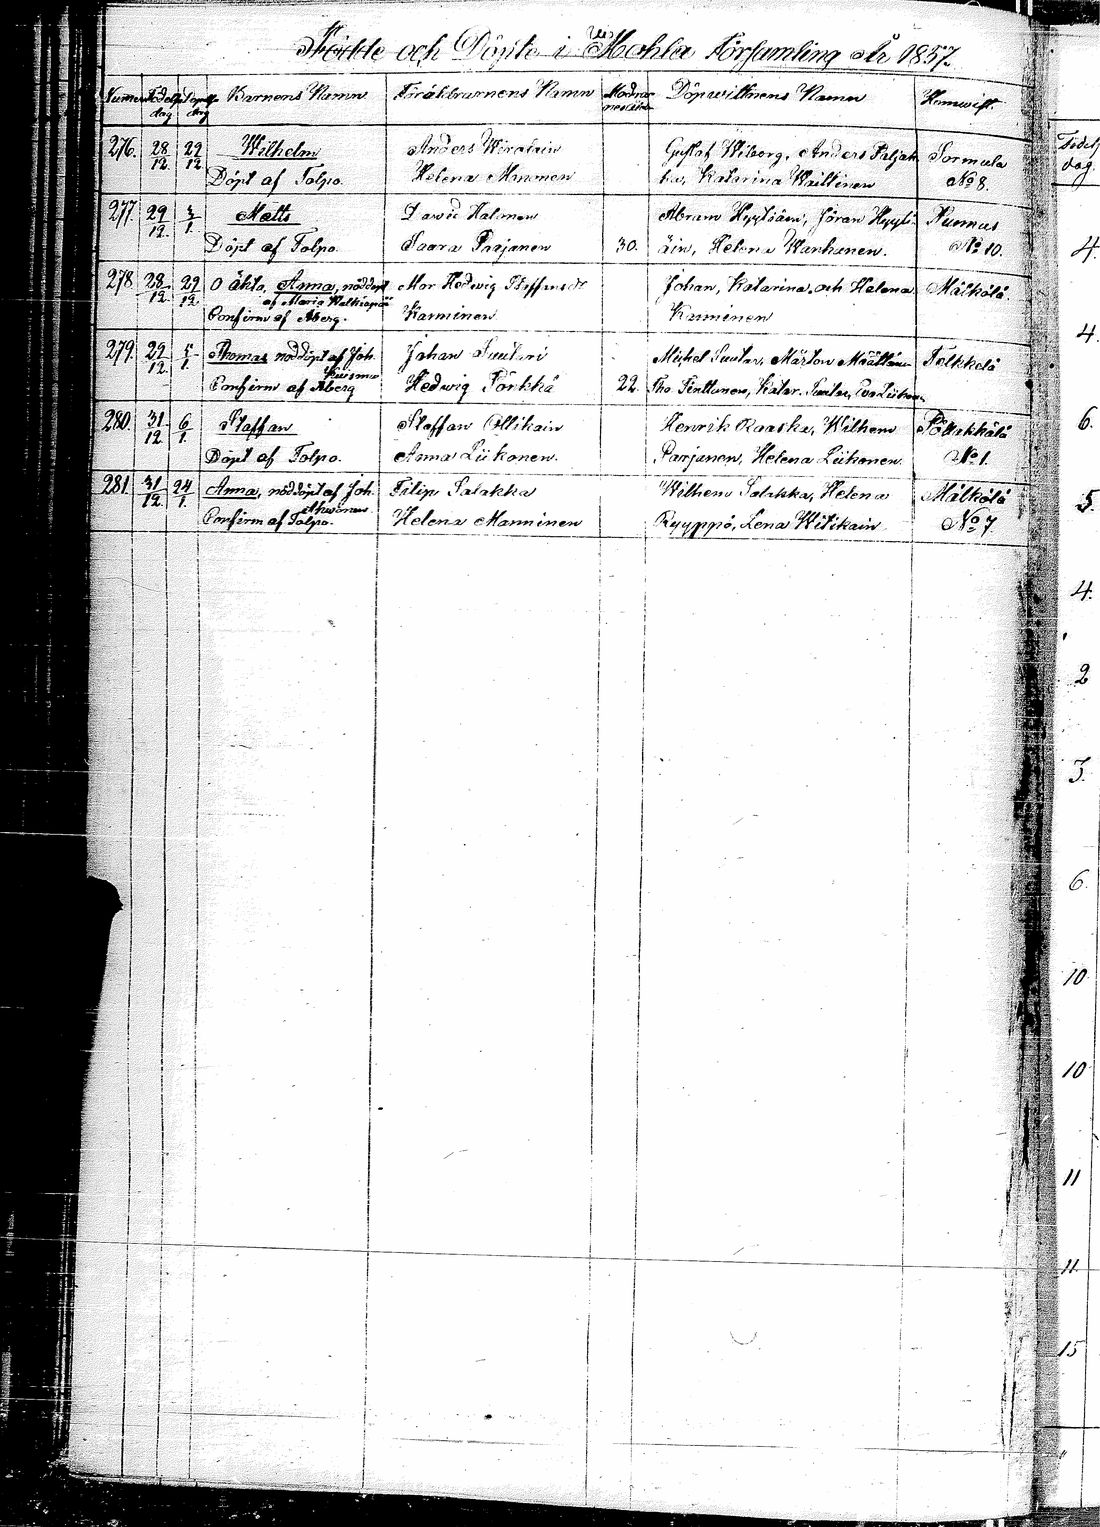 Födde och Döpte i Mohla Församling År 1857.
Numer Födelse dag Döpelse dag Barnens Namn Föräldrarnens Namn Modrens Döpvittnens Namn Hemvist
276. 28/12. 29/12. Wilhelm Anders Wirolain Gustaf Wiborg, Anders Paljak- Sormula
Döpt af Tolpo. Helena Mannonen ka, Katarina Waittinen No 8.
277. 29/12. 3/1. Matts David Halonen Abram Hyytiäin, Jöran Hyyti- Kunnus
Döpt af Tolpo. Saara Parjanen 30. äin, Helena Wanhanen. No 10.
278. 28/12 29/12. O äkta, Anna, nöddöpt Mor Hedwig Johan, Katarina och Helena Mälkölä.
af Maria
Confirm af Åberg. Karminen Karminen
279. 29/12 5/1. Thomas nöddöpt af Joh. Johan Suutari Michel Suutar, Mårten Määttänen Telkkälä
Kuisma
Confirm af Åberg Hedwig Torkkä 22. Tho. Penttonen, Katar. Suutar, Eva Liikonen
280. 31/12. 6/1. Staffan Staffan Ollikain Henrik Raaska, Wilhem Pöllakkälä
Döpt af Tolpo. Anna Liikonen. Parjanen, Helena Liikonen. No 1.
281. 31/12. 24/1. Anna, nöddöpt af Joh. Filip Salakka Wilhem Salakka, Helena Mälkölä
Ahvonen
Confirm af Tolpo. Helena Manninen Ryyppö, Lena Witikain No 7.
Födels
dag.
4.
4.
6.
5.
4.
2
3.
6.
10
10
11
11.
15